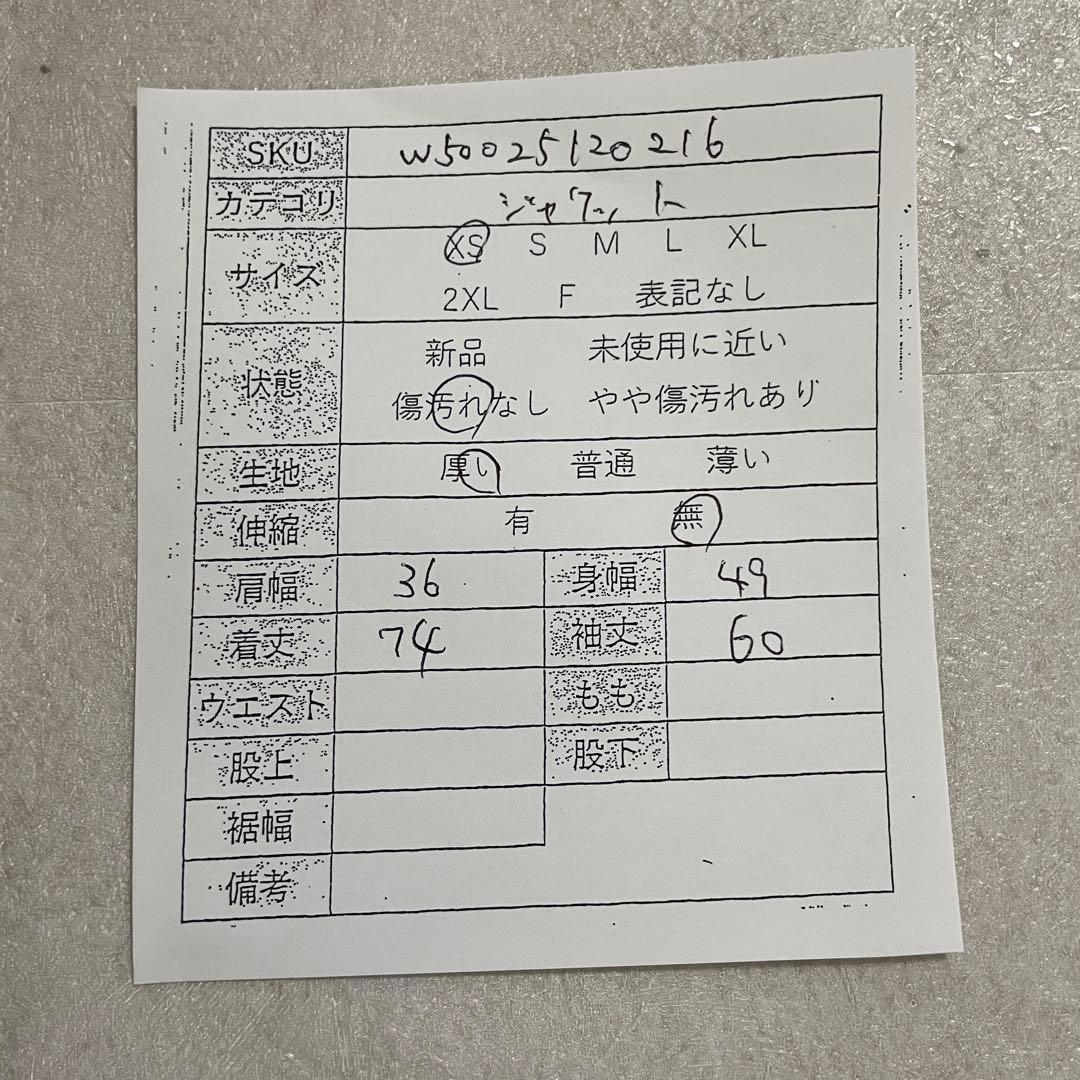 SKU W50025120216
カテゴリ ジャケット
サイズ XS S M L XL
2XL F 表記なし
状態 新品 未使用に近い
傷汚れなし やや傷汚れあり
生地 厚い 普通 薄い
伸縮 有 無
肩幅 36 身幅 49
着丈 74 袖丈 60
ウエスト もも
股上 股下
裾幅
備考